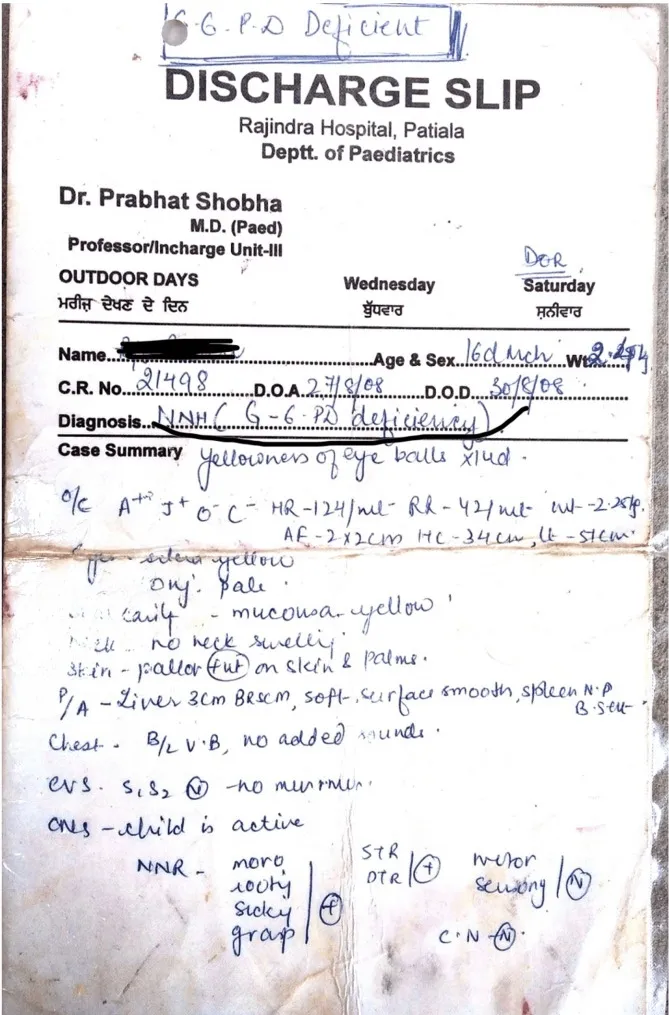 G-6.P.D Deficient
DISCHARGE SLIP
Rajindra Hospital, Patiala
Deptt. of Paediatrics
Dr. Prabhat Shobha
M.D. (Paed)
Professor/Incharge Unit-III
DOR
OUTDOOR DAYS Wednesday Saturday
ਮਰੀਜ਼ ਦੇਖਣ ਦੇ ਦਿਨ ਬੁੱਧਵਾਰ ਸ਼ਨੀਵਾਰ
Name Age & Sex 16d Mch Wt.
C.R. No. 21498 D.O.A. 27/8/08 D.O.D. 30/8/08
Diagnosis NNH ( G-6-PD deficiency)
Case Summary Yellowness of eye balls x1ud.
O/E A++ J+ O- C- HR-124/mt RR-42/mt wt-2.25kg.
AF-2x2cm HC-34cm, Lt-51cm.
sclera yellow
Conj. pale.
cavity - mucousa yellow
Neck - no neck swelling
Skin - pallor (+nt) on skin & palms.
P/A - Liver 3cm BRSCM, soft, surface smooth, spleen N.P
B.S+nt
Chest - B/L V.B, no added sounds.
CVS. S1S2 (N) -no murmur.
CNS - child is active
NNR - moro STR motor
rooting DTR (+) sensory (N)
sucking (+)
grasp C.N-(N).